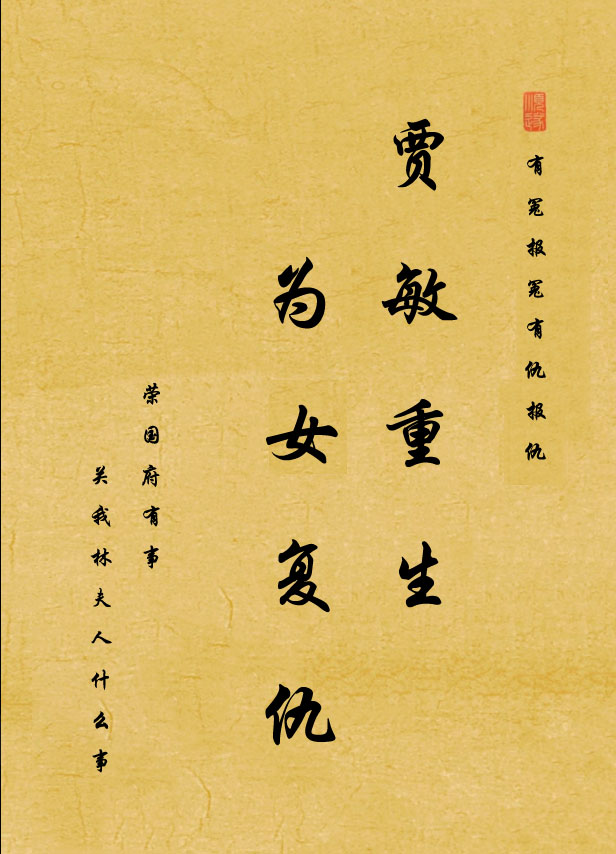 有冤报冤有仇报仇
贾敏重生
为女复仇
荣国府有事
关我林夫人什么事